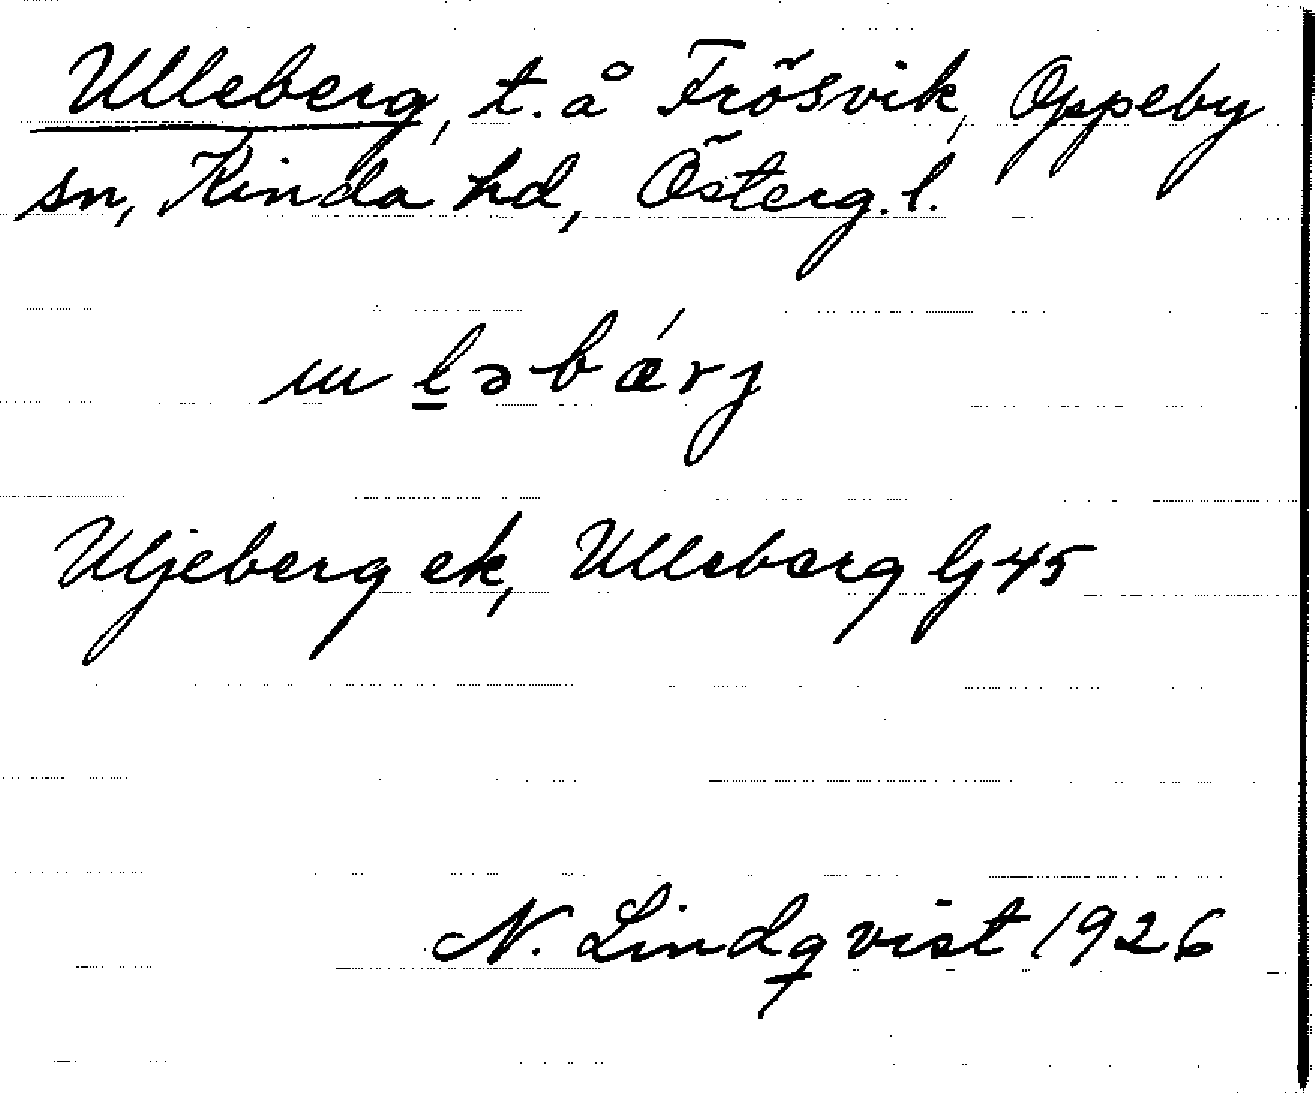 Ulleberg, t. å Frösvik, Oppeby
sn, Kinda hd, Österg. l.
ulləbǽrj
Uljeberg ek, Ulleberg Gj 45
N. Lindqvist 1926